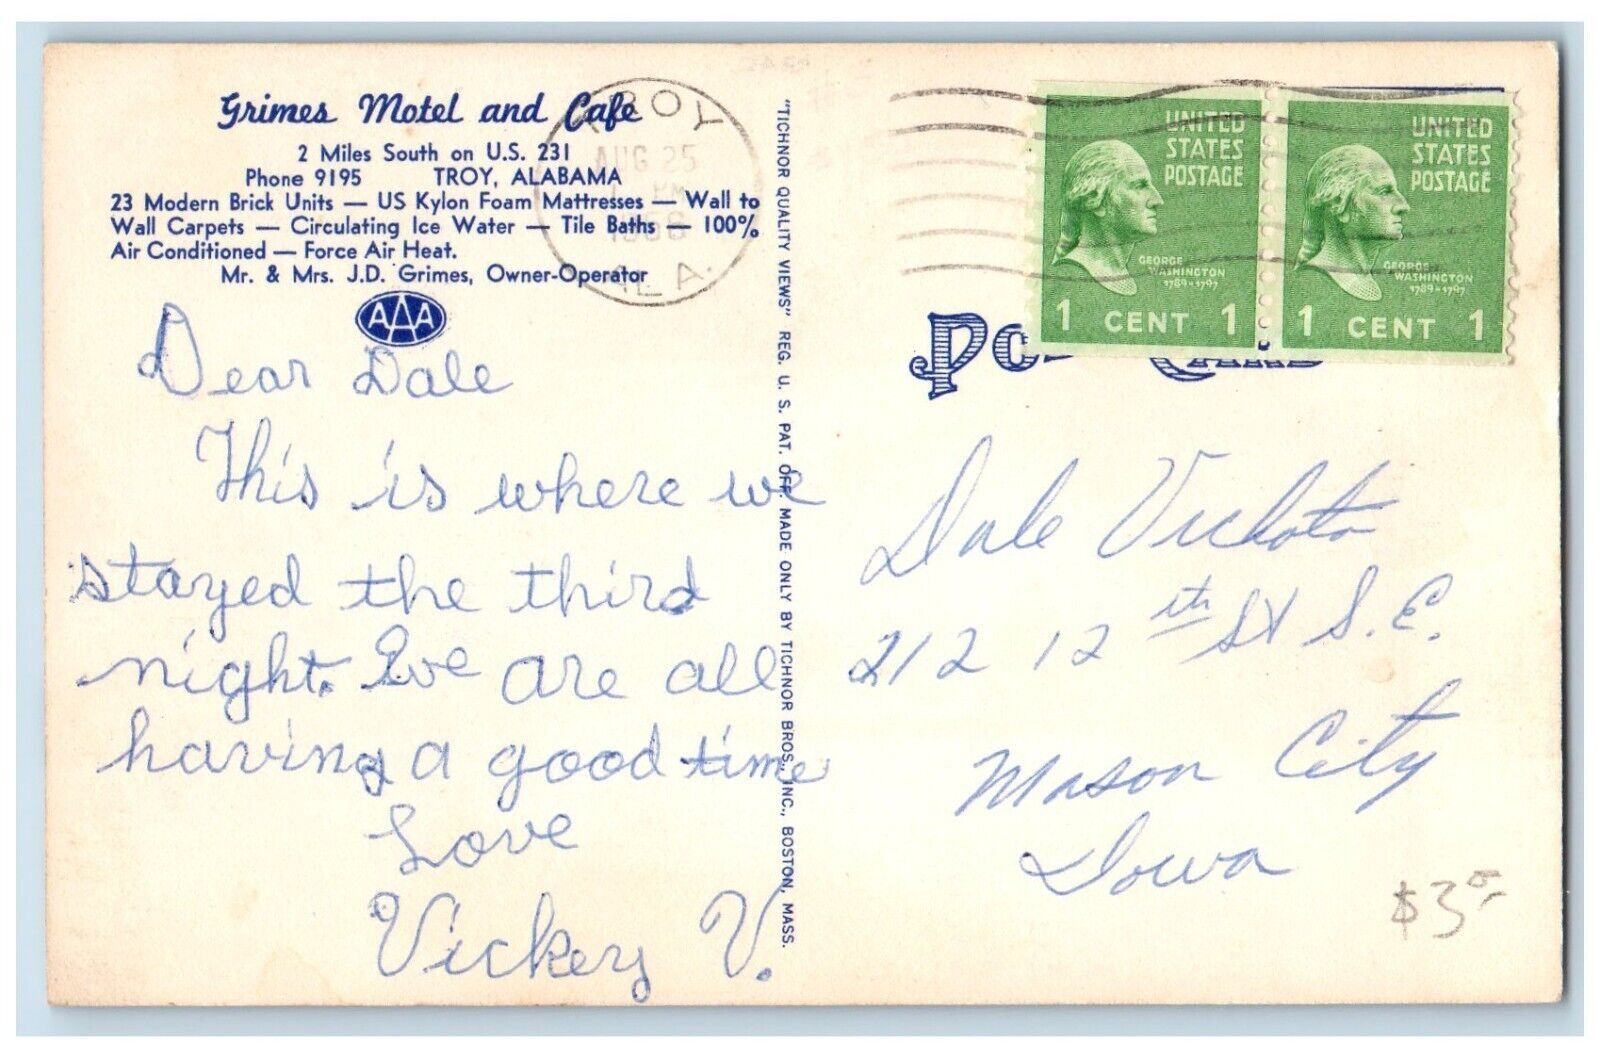 Grimes Motel and Cafe
2 Miles South on U.S. 231
Phone 9195 TROY, ALABAMA
23 Modern Brick Units — US Kylon Foam Mattresses — Wall to
Wall Carpets — Circulating Ice Water — Tile Baths — 100%
Air Conditioned — Force Air Heat.
Mr. & Mrs. J.D. Grimes, Owner-Operator
AAA
Dear Dale
This is where we
stayed the third
night. We are all
having a good time
Love
Vickey V.
"TICHNOR QUALITY VIEWS" REG. U. S. PAT. OFF. MADE ONLY BY TICHNOR BROS., INC., BOSTON, MASS.
TROY
AUG 25
PM
ALA.
UNITED
STATES
POSTAGE
GEORGE
WASHINGTON
1789-1797
1 CENT 1
UNITED
STATES
POSTAGE
GEORGE
WASHINGTON
1789-1797
1 CENT 1
Post Card
Dale
212 12th St S.E.
Mason City
Iowa
$3